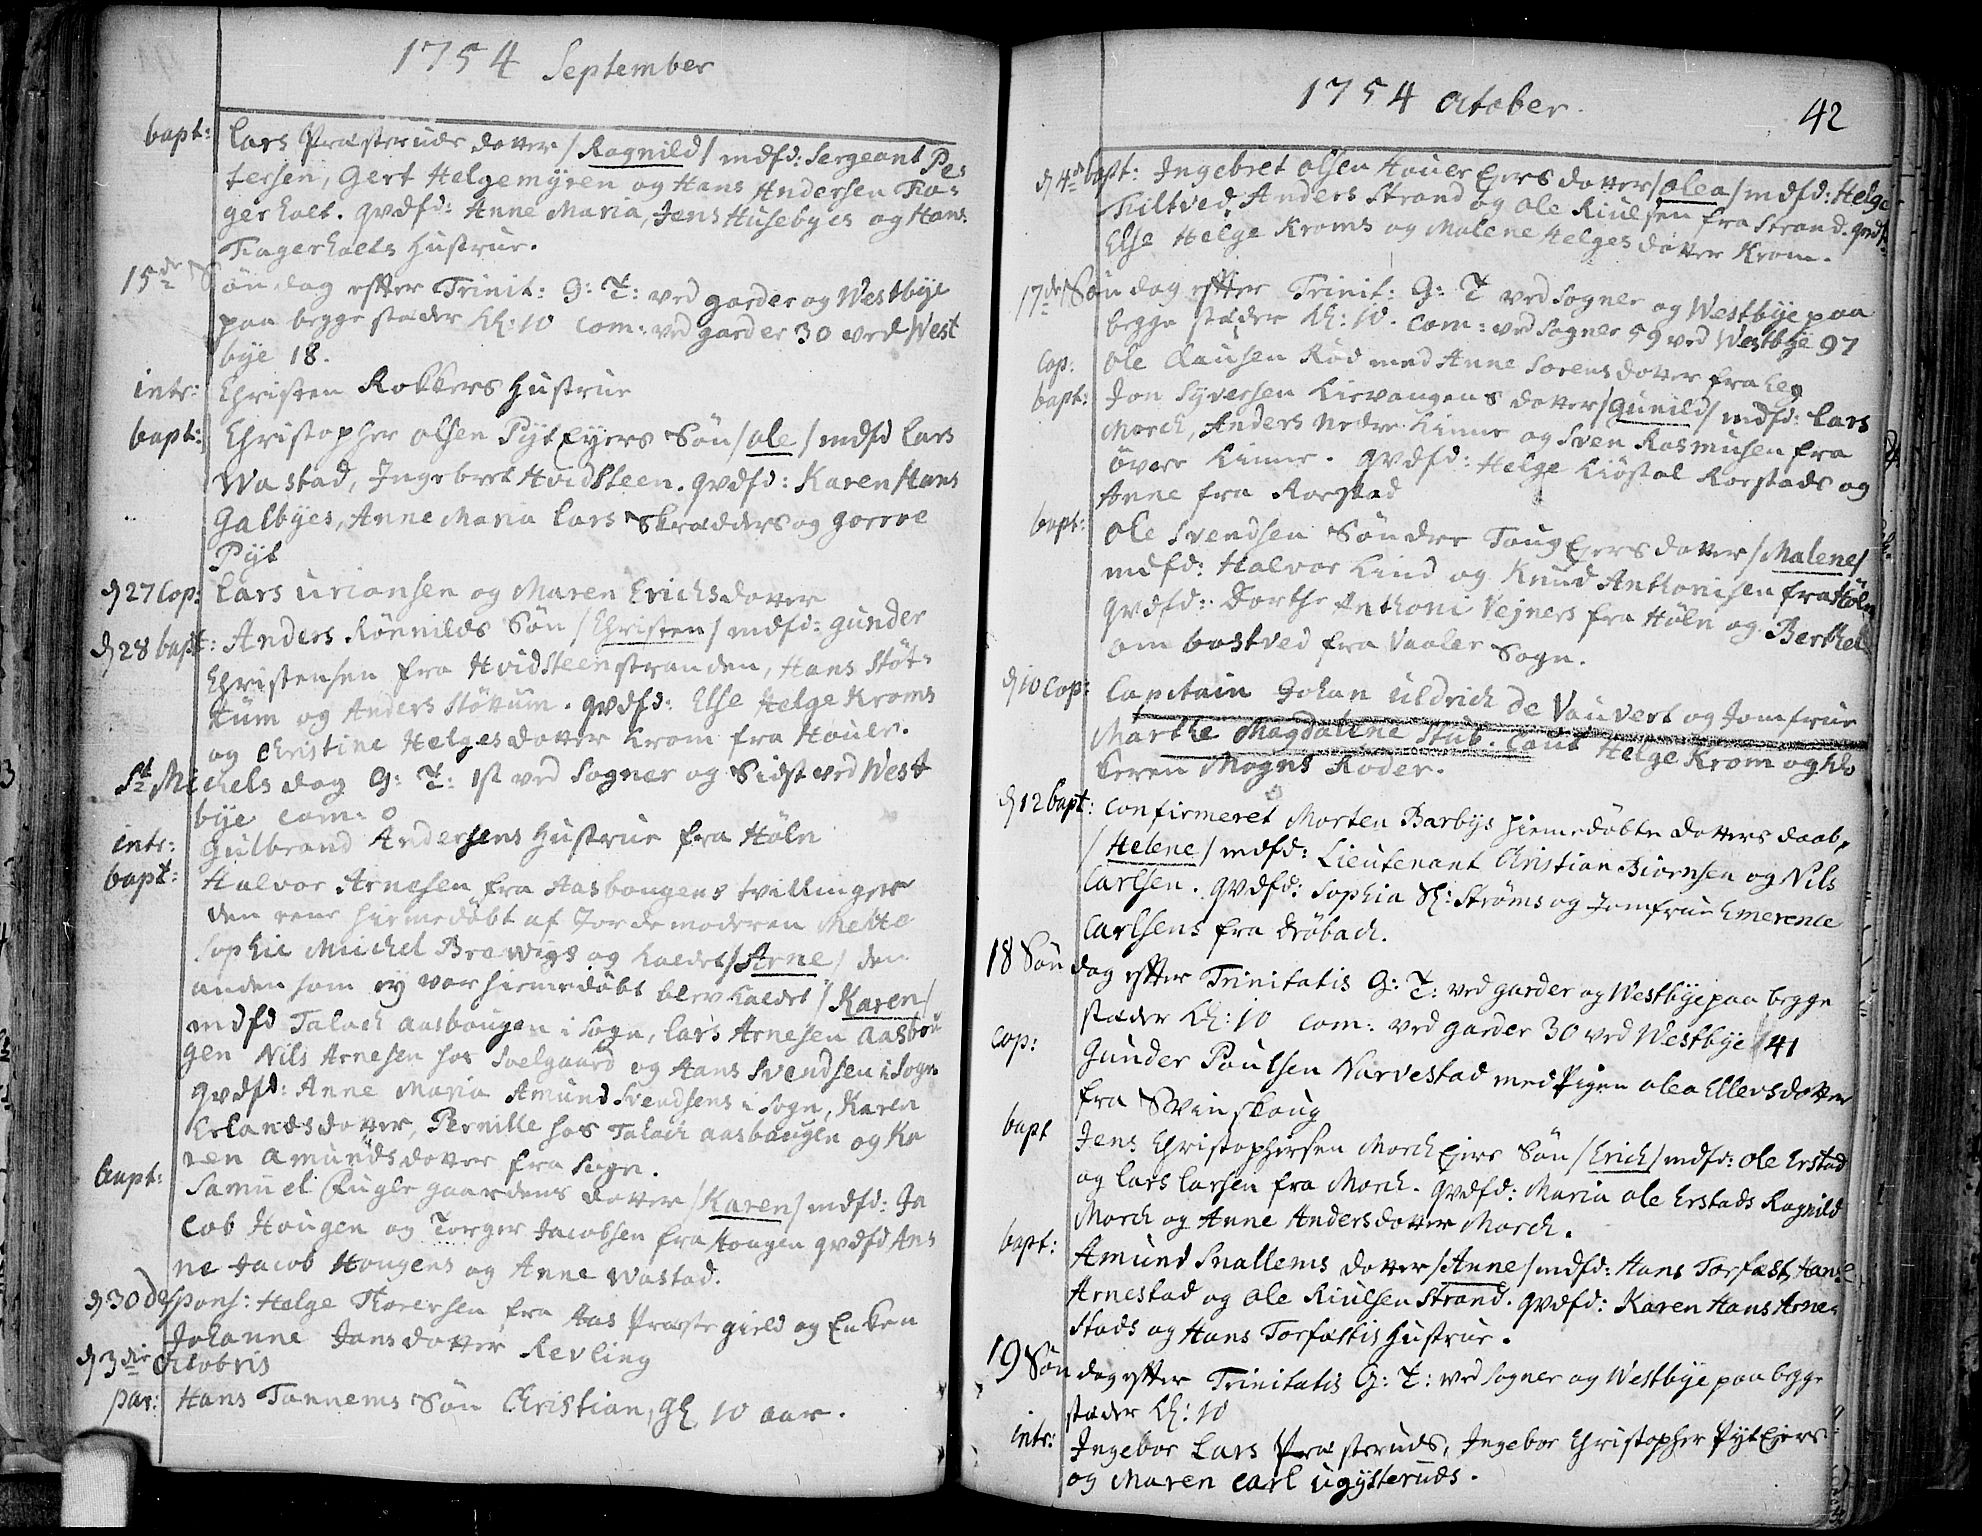 1754 September
bapt: Lars Præsteruds dotter /Ragnild/ mdfd: Sergeant Pe-
tersen, Gert Helgemyren og Hans Andersen Tia-
gerholt. qvdfd: Anne Maria, Jens Husebyes og Hans
Tiagerholts Hustrue.
15de Søndag efter Trinit: G: T: ved garder og Westbye
paa begge stæder Kl: 10 Com: ved garder 30 ved West
bye 18.
intr: Christen Rokkers Hustrue
bapt: Christopher Olsen Pyt Eyers Søn /Ole/ mdfd Lars
Wastad, Ingebret Hvidsteen. qvdfd: Karen Hans
Galbyes, Anne Maria Lars Skrædders og
Pyt
d 27 Cop: Lars Uriansen og Maren Erichsdotter
d 28 bapt: Anders Rønnilds Søn /Christen/ mdfd: Gunder
Christensen fra Hvidsteenstranden, Hans Støt-
tum og Anders Støttum. qvdfd: Else Helge Kroms
og Christine Helgesdotter Krom fra Houer.
St Michels dag G: T: 1st ved Sogner og Sidst ved West
bye Com: 0
intr: Gulbrand Andersens Hustrue fra Høln
bapt: Halvor Arnesen fra Aasbougens tvillinger
den eene hiemedøbt af Jordemoderen Mette
Sophie Michel Brawigs og kaldet /Arne/ den
anden som ey var hiemedøbt blev kaldet /Karen/
mdfd Talack Aasbougen i Sogn, Lars Arnesen Aasbou
gen Nils Arnesen hos Soelgaard og Hans Svendsen i Sogn
qvdfd: Anne Maria Amund Svendsens i Sogn, Karen
Erlandsdotter, Pernille hos Talack Aasbougen og Ka
ren Amundsdotter fra Sogn.
bapt: Samuel Fuglegaardens dotter /Karen/ mdfd: Ja
cob Hougen og Torger Jacobsen fra Hougen qvdfd An-
ne Jacob Hougens og Anne Wastad.
d 30 despons: Helge Thoersen fra Aas Præstegield og Enken
Johanne Jansdotter Revling
d 3die Octobris
par: Hans Tannems Søn Christian, gl 10 aar.
1754 October.
42
d 4de bapt: Ingebret Olsen Houer Ejers dotter /Olea/ mdfd: Helge
Tiltved, Anders Strand og Ole Riulsen fra Strand. qvdf:
Else Helge Kroms og Malene Helgesdotter Krom.
17de Søndag efter Trinit: G: T ved Sogner og Westbye paa
begge stæder Kl: 10. Com: ved Sogner 59 ved Westbye 97
Cop: Ole Clausen Rød med Anne Sorensdotter fra Leg
bapt: Jon Syversen Kirvangens dotter /Gunild/ mdfd: Lars
Morck, Anders Nedre Kinne og Sven Rasmusen fra
øvere Kinne. qvdfd: Helge Kiøstal Rorstads og
Anne fra Rorstad
bapt: Ole Svendsen Søndre Toug Ejers dotter /Malene/
mdfd: Halvor Lind og Knud Anthonisen fra Høln
qvdfd: Dorthe Anthoni Vejners fra Høln og Berthe
om bostved fra Vaaler Sogn.
d 10 Cop: Capitain Johan Uldrich de Vauvert og Jomfrue
Marthe Magdalene Stub. Caut Helge Krom og Klo
keren Mogns Røder.
d 12 bapt: Confirmeret Morten Barbys hiemedøbte dotters daab,
/Helene/ mdfd: Lieutenant Christian Biørnsen og Nils
Carlsen. qvdfd: Sophia Sl: Strøms og Jomfrue Emerence
Carlsens fra Drøbach.
18 Søndag efter Trinitatis G: T: ved garder og Westbye paa begge
stæder Kl: 10 Com: ved garder 30 ved Westbye 41
Cop: Gunder Poulsen Narvestad med Pigen Olea Ellersdotter
fra Svinskoug
bapt Jens Christophersen Morck Ejers Søn /Erich/ mdfd: Ole Erstad
og Lars Larsen fra Morck. qvdfd: Maria Ole Erstads Ragnild
Morck og Anne Andersdotter Morck.
bapt: Amund Snallems dotter /Anne/ mdfd: Hans Torfæst, Hans
Arnestad og Ole Riulsen Strand. qvdfd: Karen Hans Arne-
stads og Hans Torfæstis Hustrue.
19 Søndag efter Trinitatis G: T: ved Sogner og Westbye paa begge
stæder Kl: 10
intr: Ingebor Lars Præsteruds, Ingebor Christopher Pyt Ejers
og Maren Carl Ugysteruds.